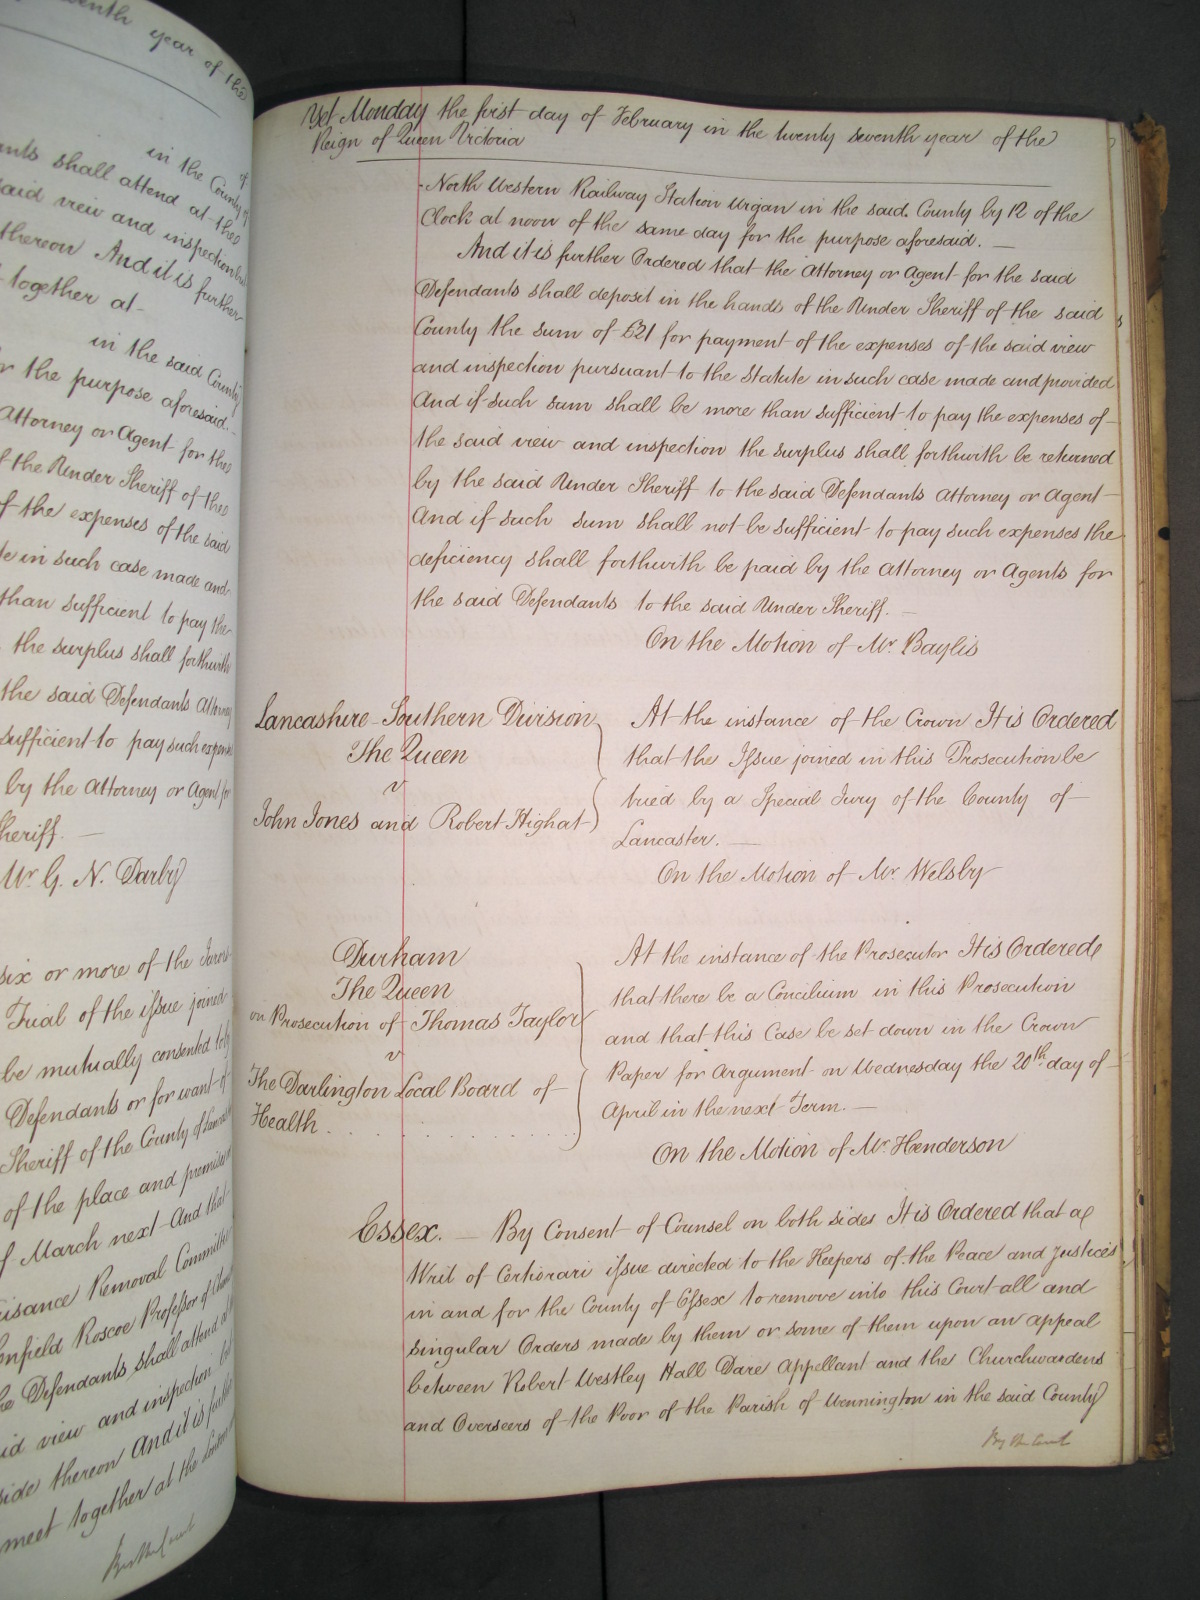 eventh year of the
in the County of
nts shall attend at the
said view and inspection
thereon And it is further
together at
in the said County
r the purpose aforesaid.
Attorney or Agent for the
f the Under Sheriff of the
f the expenses of the said
te in such case made and
than sufficient to pay the
the surplus shall forthwith
the said Defendants Attorney
sufficient to pay such expenses
by the Attorney or Agent for
heriff.
Mr G. N. Darby
six or more of the Jurors
Trial of the issue joined
be mutually consented to by
Defendants or for want of
Sheriff of the County of
of the place and premises
f March next And that
uisance Removal Committee
enfield Roscoe Professor of
he Defendants shall attend at
id view and inspection
side thereon And it is further
meet together at the London
By the Court
Yet Monday the first day of February in the twenty seventh year of the
Reign of Queen Victoria
North Western Railway Station Wigan in the said County by 12 of the
Clock at noon of the same day for the purpose aforesaid. —
And it is further Ordered that the Attorney or Agent for the said
Defendants shall deposit in the hands of the Under Sheriff of the said
County the sum of £21 for payment of the expenses of the said view
and inspection pursuant to the Statute in such case made and provided
And if such sum shall be more than sufficient to pay the expenses of
the said view and inspection the surplus shall forthwith be returned
by the said Under Sheriff to the said Defendants Attorney or Agent
And if such sum shall not be sufficient to pay such expenses the
deficiency shall forthwith be paid by the Attorney or Agents for
the said Defendants to the said Under Sheriff. —
On the Motion of Mr Baylis
Lancashire - Southern Division
The Queen
v
John Jones and Robert Highat
At the instance of the Crown It is Ordered
that the Issue joined in this Prosecution be
tried by a Special Jury of the County of
Lancaster. —
On the Motion of Mr Welsby
Durham
The Queen
on Prosecution of Thomas Taylor
v
The Darlington Local Board of
Health
At the instance of the Prosecutor It is Ordered
that there be a Concilium in this Prosecution
and that this Case be set down in the Crown
Paper for Argument on Wednesday the 20th day of
April in the next Term. —
On the Motion of Mr Henderson
Essex. — By Consent of Counsel on both sides It is Ordered that a
Writ of Certiorari issue directed to the Keepers of the Peace and Justices
in and for the County of Essex to remove into this Court all and
singular Orders made by them or some of them upon an appeal
between Robert Westley Hall Dare Appellant and the Churchwardens
and Overseers of the Poor of the Parish of Wennington in the said County
By the Court